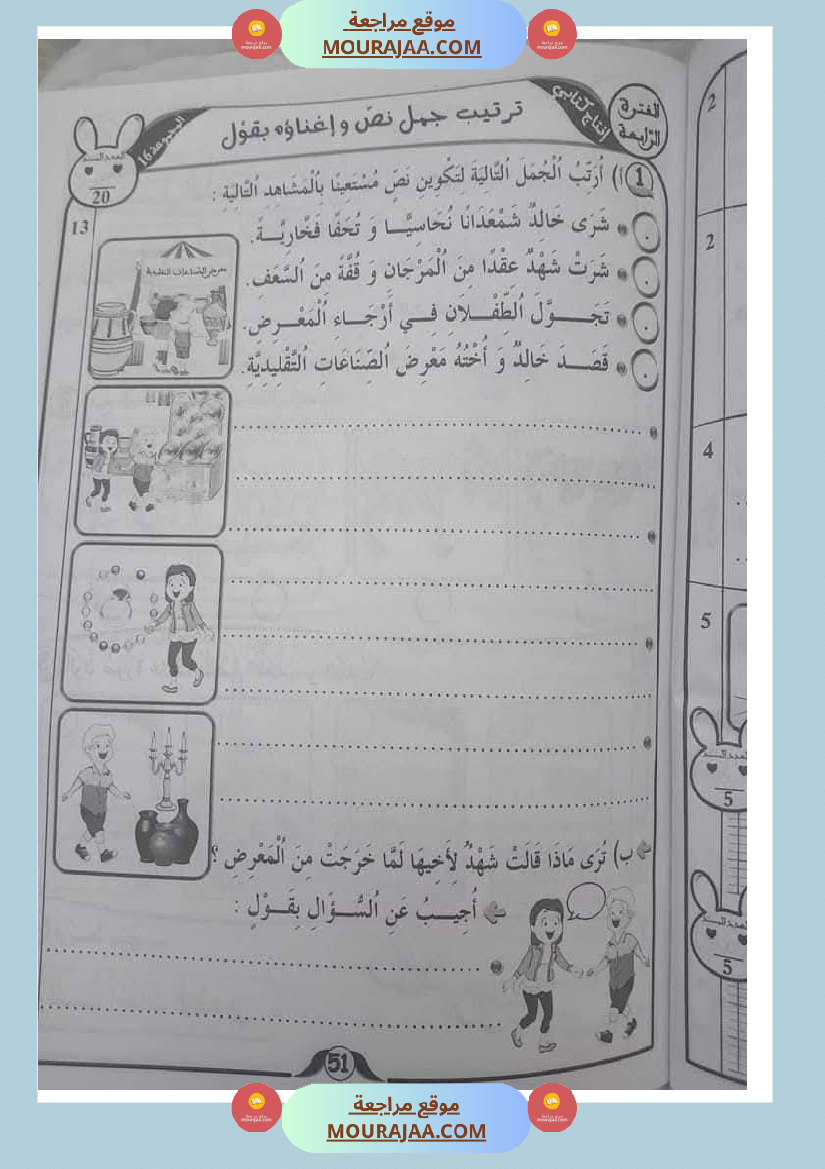 موقع مراجعة
MOURAJAA.COM
الفترة
الرّابعة
إنتاج كتابي
ترتيب جمل نصّ و إغناؤه بقول
المجموعة 16
20
1
أ) أُرَتِّبُ الْجُمَلَ التَّالِيَةَ لِتَكْوِينِ نَصٍّ مُسْتَعِينًا بِالْمَشَاهِدِ التَّالِيَةِ :
13
شَرَى خَالِدٌ شَمْعَدَانًا نُحَاسِيًّا وَ تُحَفًا فَخَّارِيَّةً.
شَرَتْ شَهْدٌ عِقْدًا مِنَ الْمَرْجَانِ وَ قُفَّةً مِنَ السَّعَفِ.
تَجَوَّلَ الطِّفْلَانِ فِي أَرْجَاءِ الْمَعْرِضِ.
قَصَدَ خَالِدٌ وَ أُخْتُهُ مَعْرِضَ الصِّنَاعَاتِ التَّقْلِيدِيَّةِ.
معرض الصّناعات التقليدية
ب) تُرَى مَاذَا قَالَتْ شَهْدٌ لِأَخِيهَا لَمَّا خَرَجَتْ مِنَ الْمَعْرِضِ ؟
أُجِيبُ عَنِ السُّؤَالِ بِقَوْلٍ :
51
2
2
4
5
5
5
موقع مراجعة
MOURAJAA.COM